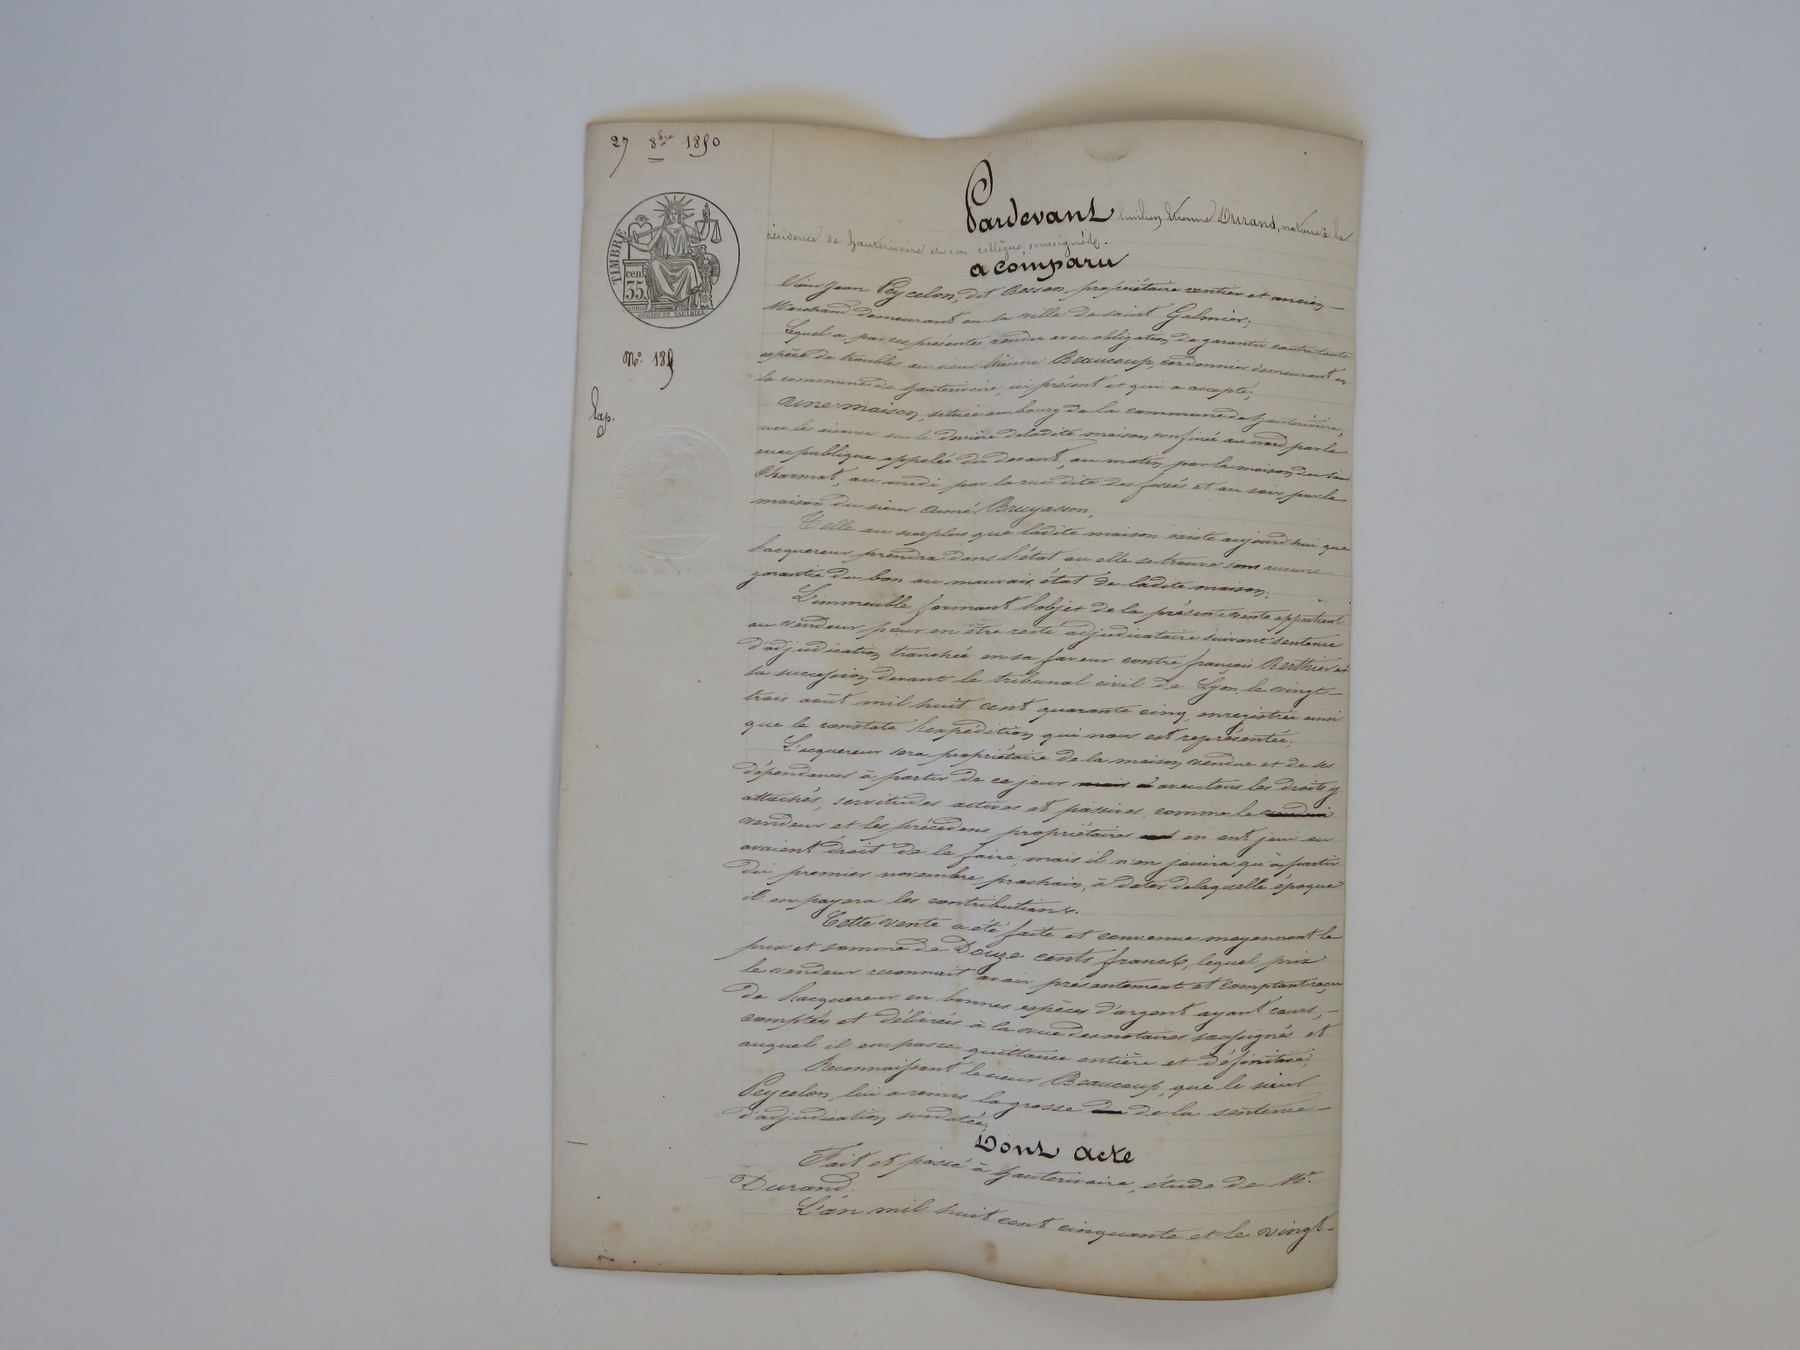 27 8bre 1850
TIMBRE
cen.
35
No. 189
Pardevant Etienne Durand, notaire à la
résidence de hauterivoire et son collègue, soussignés.
a comparu
Sieur Jean Peycelon, dit Besson, propriétaire rentier et ancien
Marchand demeurant en la ville de saint Galmier;
Lequel a, par ces présentes, vendu avec obligation de garantir contre toute
espèce de troubles au sieur Etienne Beaucoup, cordonnier demeurant en
la commune de hauterivoire, ici présent et qui a accepté;
une maison, située au bourg de la commune de hauterivoire,
avec les aisances sur le derrière de ladite maison, confinée au nord par la
rue publique appelée du devant, au matin par la maison du sieur
Charmat, au midi par la rue dite des fossés et au soir par la
maison du sieur Aimé Bruyasson,
Telle au surplus que ladite maison existe aujourd'hui que
l'acquereur prendra dans l'état ou elle se trouve sans aucune
garantie du bon ou mauvais état de ladite maison;
L'immeuble formant l'objet de la présente vente appartient
au vendeur pour en être resté adjudicataire suivant sentence
d'adjudication tranchée en sa faveur contre françois Berthier et
sa succession devant le tribunal civil de Lyon le vingt-
trois août mil huit cent quarante cinq, enregistrée ainsi
que le constate l'expédition qui nous est représentée;
L'acquereur sera propriétaire de la maison vendue et de ses
dépendances à partir de ce jour mais à avec tous les droits y
attachés, servitudes actives et passives, comme le
vendeur et les précédens propriétaires en ont joui ou
avaient droit de le faire, mais il n'en jouira qu'à partir
du premier novembre prochain, à dater de laquelle époque
il en payera les contributions.
Cette vente a été faite et convenue moyennant le
prix et somme de Douze cents francs, lequel prix
le vendeur reconnait avoir présentement et comptant reçu
de l'acquereur en bonnes espèces d'argent ayant cours,-
comptées et délivrées à la vue des notaires soussignés et
auquel il en passe quittance entière et définitive;
Reconnaissant le sieur Beaucoup, que le sieur
Peycelon, lui a remis la grosse de la sentence-
d'adjudication susdatée;
Dont acte
Fait et passé à hauterivoire, étude de Me.
Durand
L'an mil huit cent cinquante et le vingt-